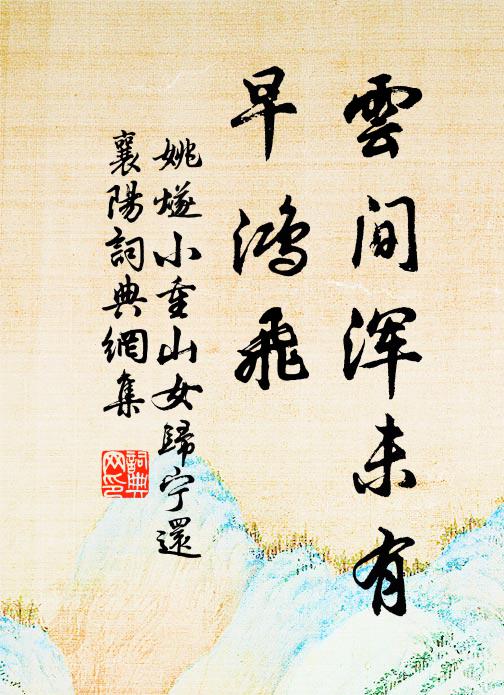 雲间渾未有
早鴻飛
姚燧小重山女歸宁還
襄陽詞典網集
詞典
网印